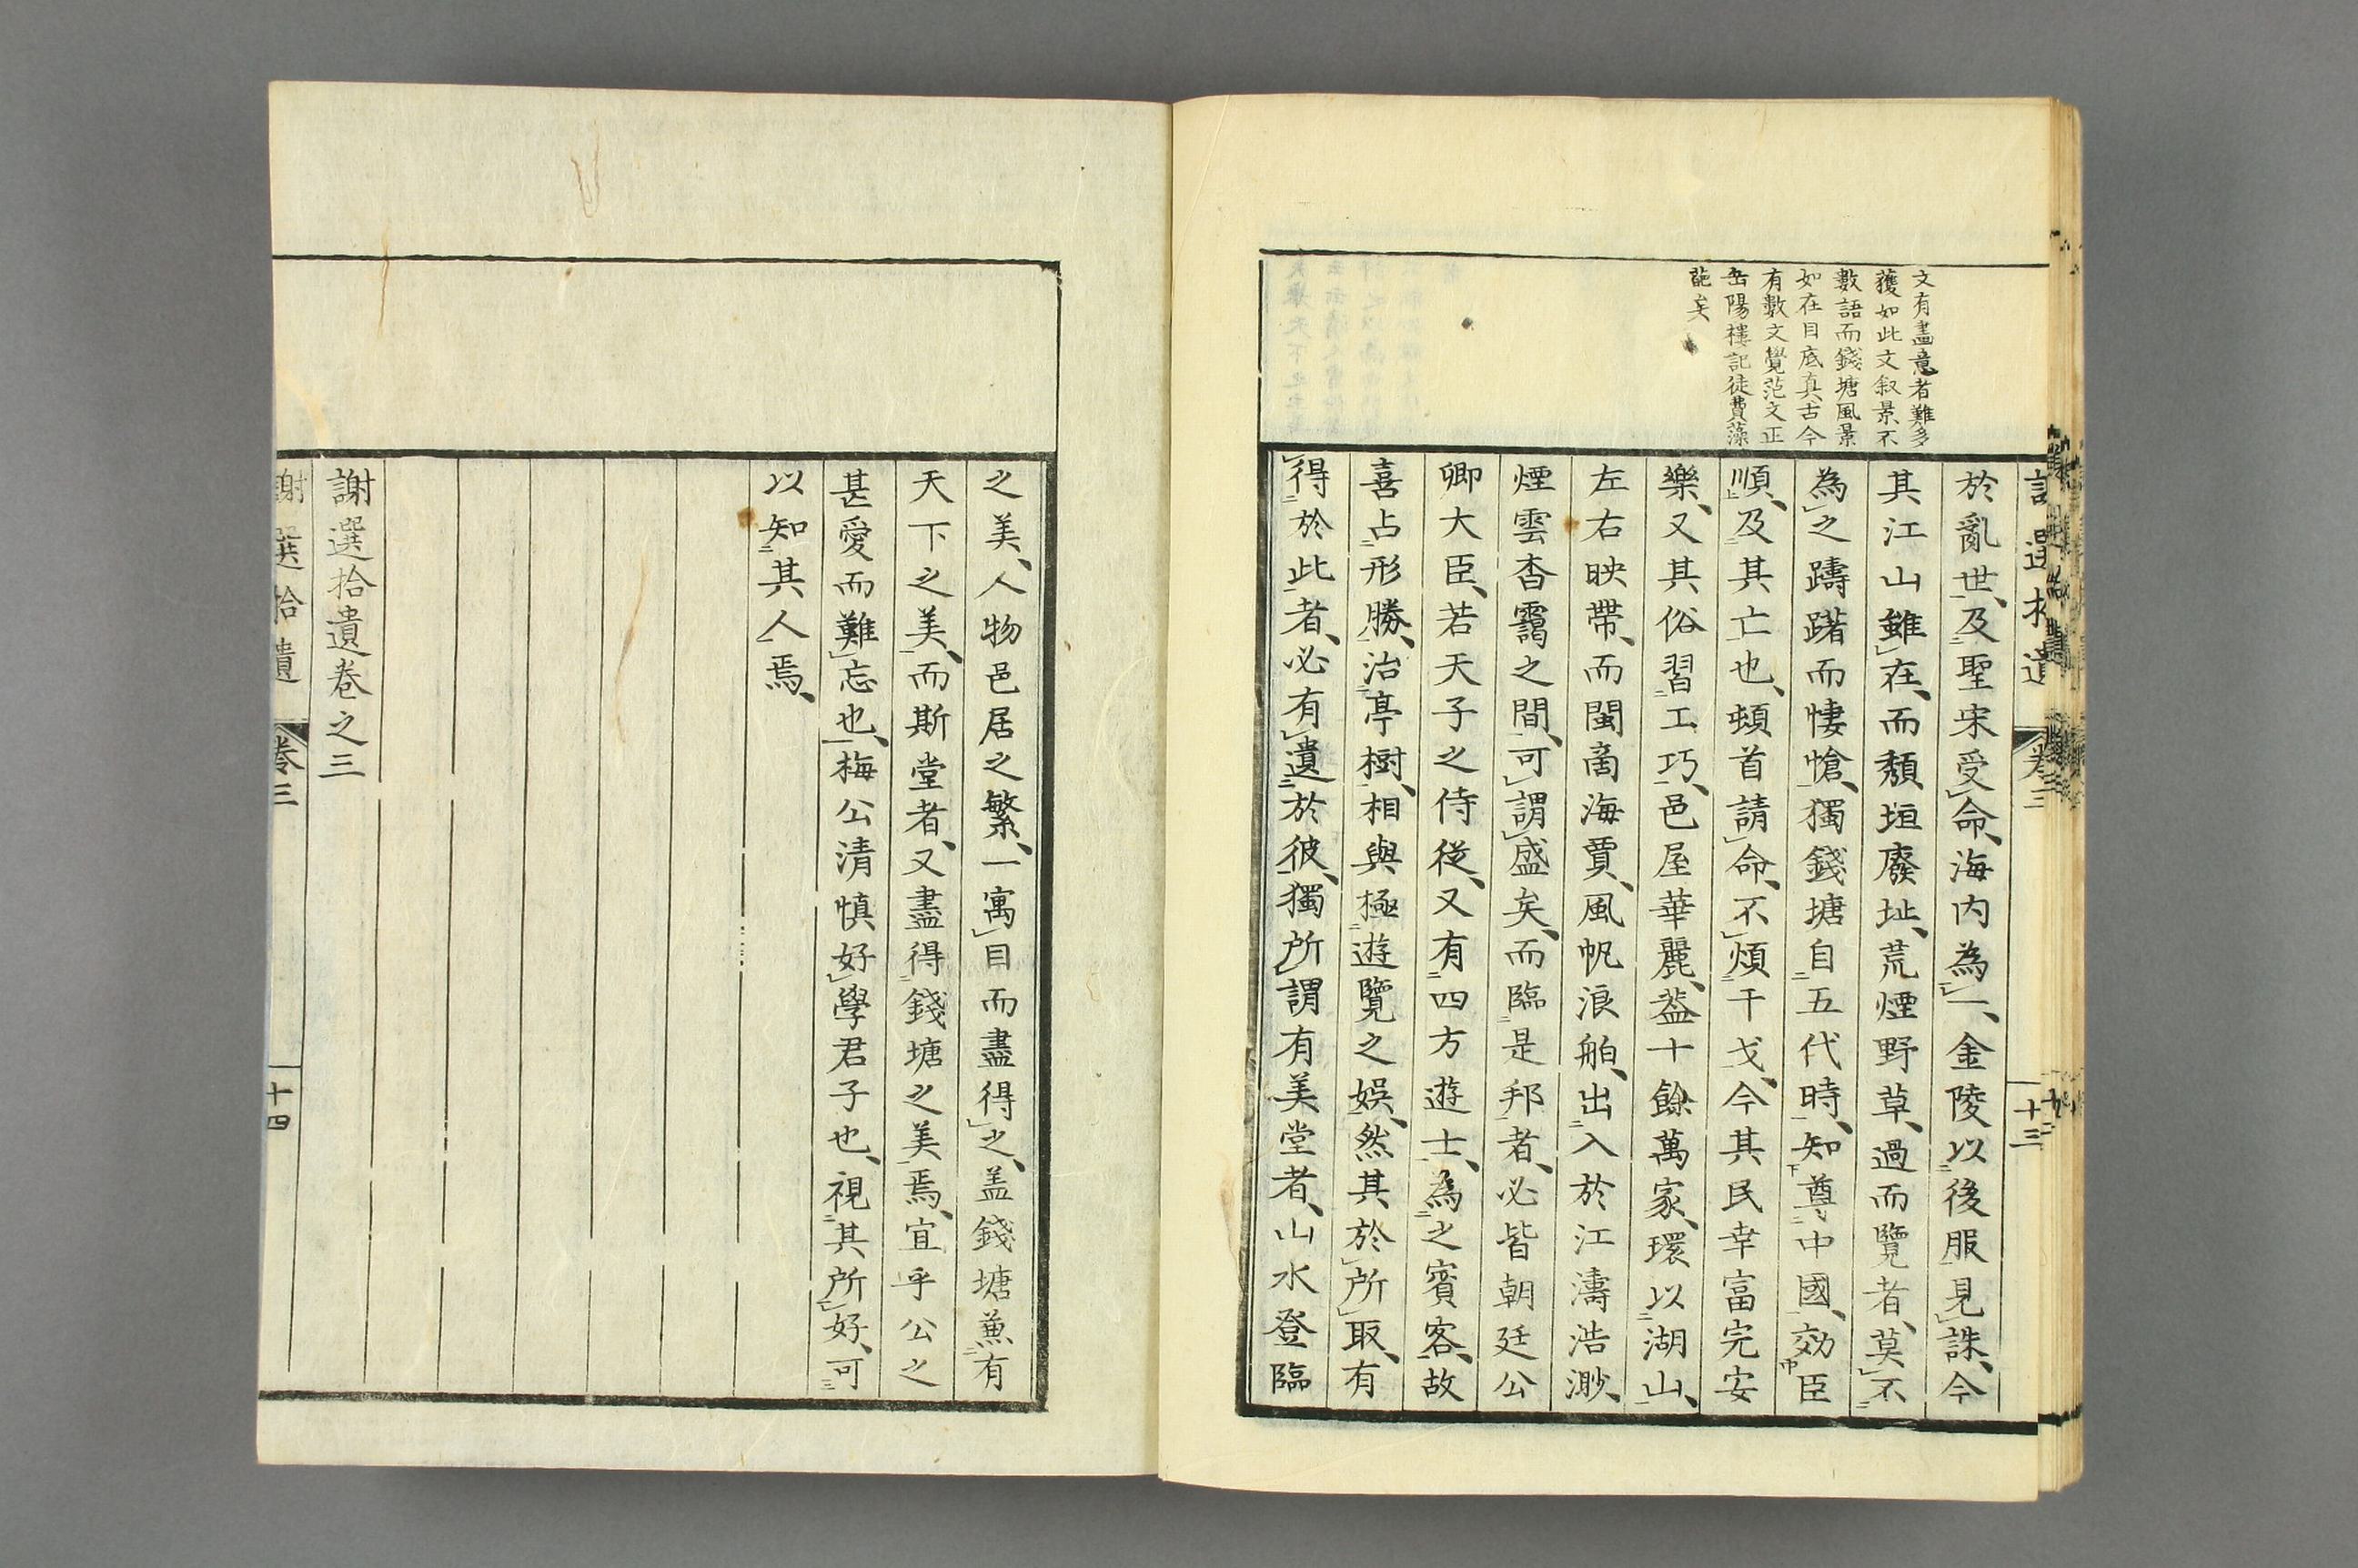 文有盡意者難多
獲如此文叙景不
數語而錢塘風景
如在目底真古今
有數文覺范文正
岳陽樓記徒費藻
葩矣
卷三
十三
於亂世、及聖宋受命、海内為一、金陵以後服見誅、今
其江山雖在、而頽垣廢址、荒煙野草、過而覽者、莫不
為之躊躇而悽愴、獨錢塘自五代時、知尊中國、効臣
順、及其亡也、頓首請命、不煩干戈、今其民幸富完安
樂、又其俗習工巧、邑屋華麗、葢十餘萬家、環以湖山、
左右映帶、而閩啇海賈、風帆浪舶、出入於江濤浩渺、
煙雲杳靄之間、可謂盛矣、而臨是邦者、必皆朝廷公
卿大臣、若天子之侍從、又有四方遊士、為之賓客、故
喜占形勝、治亭榭、相與極遊覽之娯、然其於所取、有
得於此者、必有遺於彼、獨所謂有美堂者、山水登臨
之美、人物邑居之繁、一寓目而盡得之、盖錢塘兼有
天下之美、而斯堂者、又盡得錢塘之美焉、宜乎公之
甚愛而難忘也、梅公清慎好學君子也、視其所好、可
以知其人焉、
謝選拾遺卷之三
謝選拾遺
卷三
十四